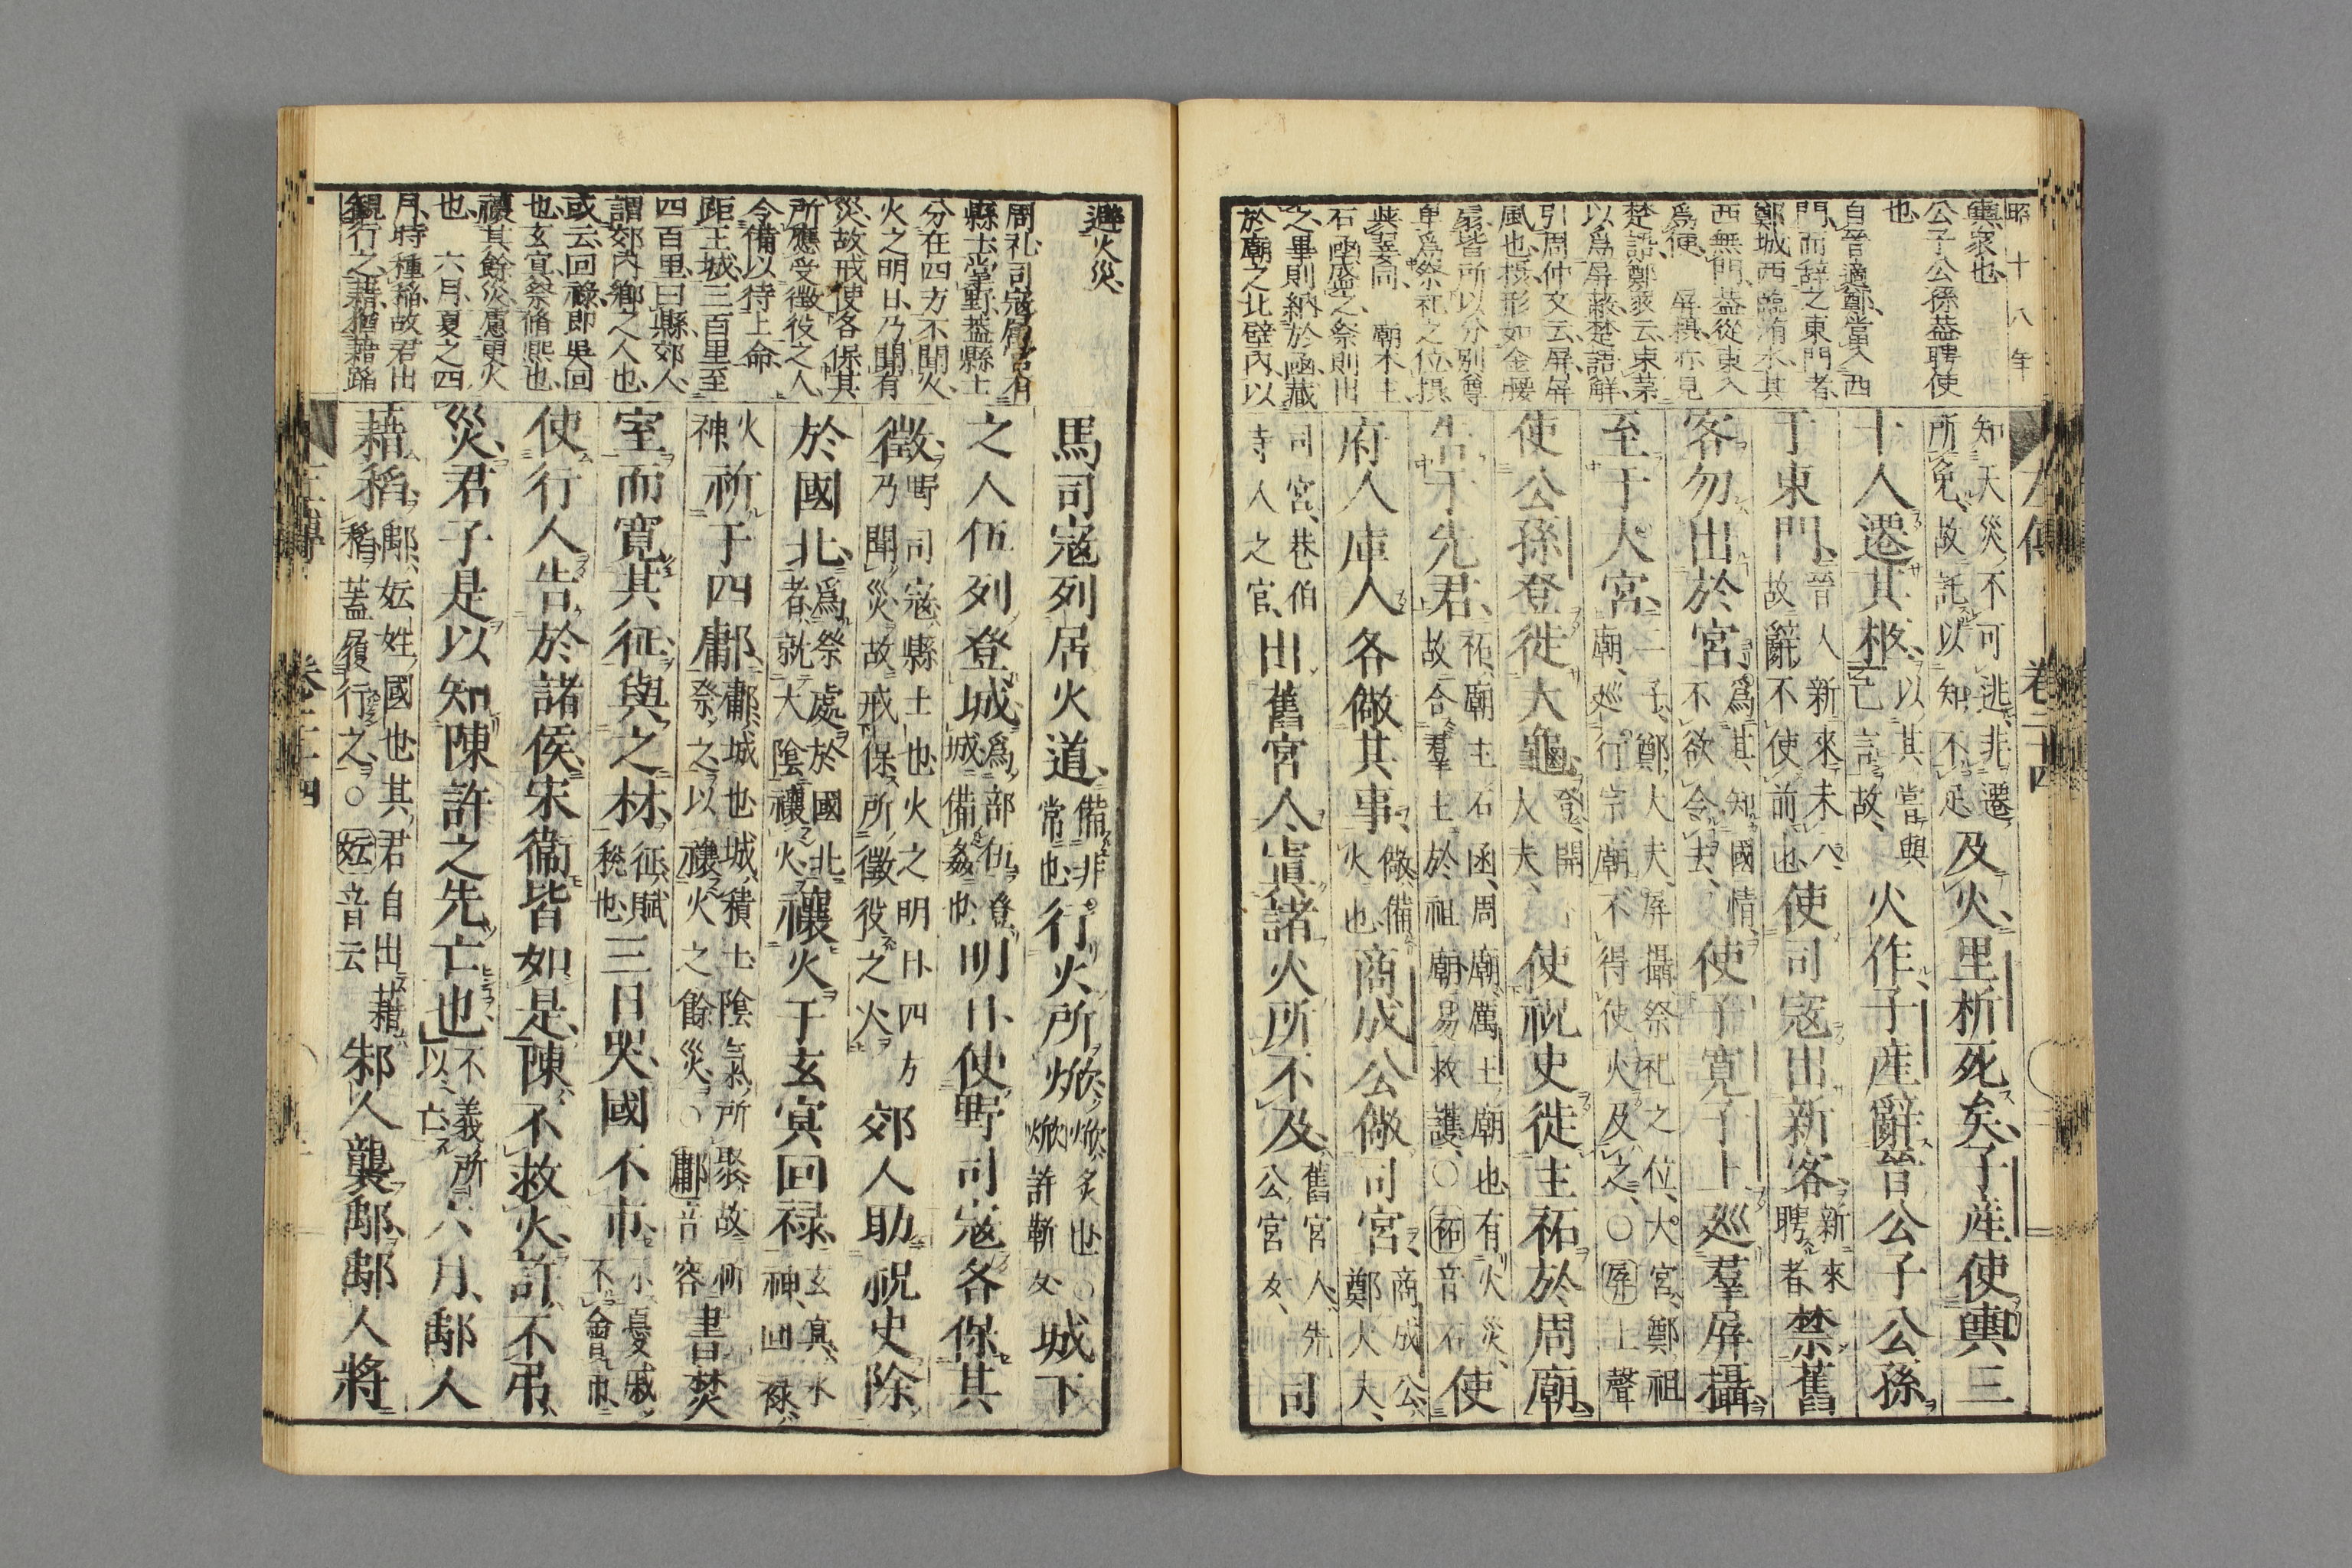 昭十八年
輿衆也
公子公孫葢聘使
也
自晉適鄭當入西
門而辭之東門者
鄭城西臨洧水其
西無門葢從東入
爲便 屏攝亦見
楚語鄭衆云東茅
以爲屏蔽楚語解
引周仲文云屏屏
風也攝形如金腰
扇皆所以分別尊
卑爲祭祀之位攝
與翣同 廟木主
石凾盛之祭則出
之畢則納於凾藏
於廟之北壁內以
知天災不可逃非遷
所免故託以知不足
及火里析死矣子產使輿三
十人遷其柩
以其嘗與
己言故
火作子產辭晉公子公孫
于東門
晉人新來未入
故辭不使前也
使司寇出新客
新來
聘者
禁舊
客勿出於宮
爲其知國情
不欲令去
使子寬子上巡羣屏攝
至于大宮
二子鄭大夫屏攝祭祀之位大宮鄭祖
廟巡行宗廟不得使火及之○屏上聲
使公孫登徙大龜
登開
大夫
使祝史徙主祏於周廟
告于先君
祏廟主石函周廟厲王廟也有火災
故合羣主於祖廟易救護○祏音石
使
府人庫人各儆其事
儆備
火也
商成公儆司宮
商成公
鄭大夫
司宮巷伯
寺人之官
出舊宮人寘諸火所不及
舊宮人先
公宮女
司
左傳 卷二十四
避火災
周礼司寇屬官有
縣士掌野葢縣士
分在四方不聞火
火之明日乃聞有
災故戒使各保其
所應受徵役之人
令備以待上命
距王城三百里至
四百里曰縣郊人
謂郊內鄉之人也
或云回祿即吳回
也玄冥祭脩熙也
禳其餘災慮更火
也 六月夏之四
月時種稻故君出
觀行之藉猶藉蹈
馬司寇列居火道
備非
常也
行火所焮
焮炙也○
焮許靳女
城下
之人伍列登城
爲部伍登
城備姦也
明日使野司寇各保其
徵
野司寇縣士也火之明日四方
乃聞災故戒保所徵役之人
郊人助祝史除
於國北
爲祭處於國北
者就大陰禳火
禳火于玄冥回禄
玄冥水
神回禄
火
神
祈于四鄘
鄘城也城積土陰氣所聚故祈
祭之以禳火之餘災○鄘音容
書焚
室而寬其征與之材
征賦
稅也
三日哭國不市
示憂戚
不會市
使行人告於諸侯宋衞皆如是陳不救火許不弔
災君子是以知陳許之先亡也
不義所
以亡
六月鄅人
藉稻
鄅妘姓國也其君自出藉
稻蓋履行之○妘音云
邾人襲鄅鄅人將
左傳 卷二十四